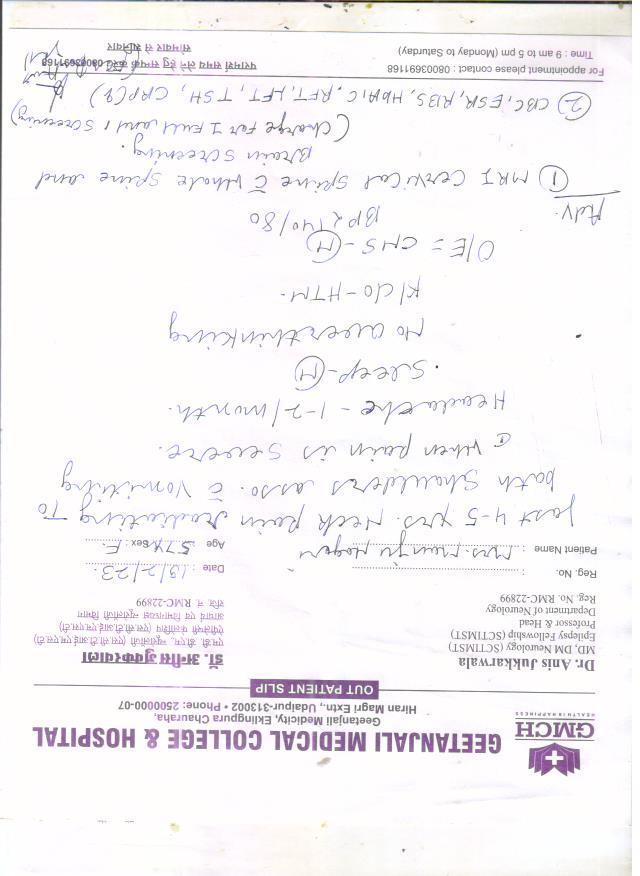 GMCH
HEALTH IS HAPPINESS
GEETANJALI MEDICAL COLLEGE & HOSPITAL
Geetanjali Medicity, Eklingpura Chauraha,
Hiran Magri Extn., Udaipur-313002 • Phone: 2500000-07
OUT PATIENT SLIP
Dr. Anis Jukkarwala
MD, DM Neurology (SCTIMST)
Epilepsy Fellowship (SCTIMST)
Professor & Head
Department of Neurology
Reg. No. RMC-22899
डॉ. अनीस जुक्करवाला
एम.डी, डी.एम, न्यूरोलॉजी (एस.सी.टी.आई.एम.एस.टी)
ऐपीलेप्सी फेलोशिप (एस.सी.टी.आई.एम.एस.टी)
आचार्य एवं विभागाध्यक्ष न्यूरोलॉजी विभाग
रजि. न. RMC-22899
Reg. No. :
Date : 13/2/23.
Patient Name : Mrs. Manju
Age 57 Sex : F
Past 4-5 yrs. Neck pain radiating To
both shoulders asso. c̄ vomiting
c̄ when pain is severe.
Headache - 1-2/month.
Sleep - N
No overthinking
K/c/o - HTN.
O/E = CNS - N
BP 140/80
Adv.
① MRI Cervical spine c̄ whole spine and
Brain screening.
(Charge for 1 Full and 1 screening)
② CBC, ESR, RBS, HbA1C, RFT, LFT, TSH, CRP(Q)
For appointment please contact : 08003691168
Time : 9 am to 5 pm (Monday to Saturday)
परामर्श समय लेने हेतु सम्पर्क करें : 08003691168
सोमवार से शनिवार